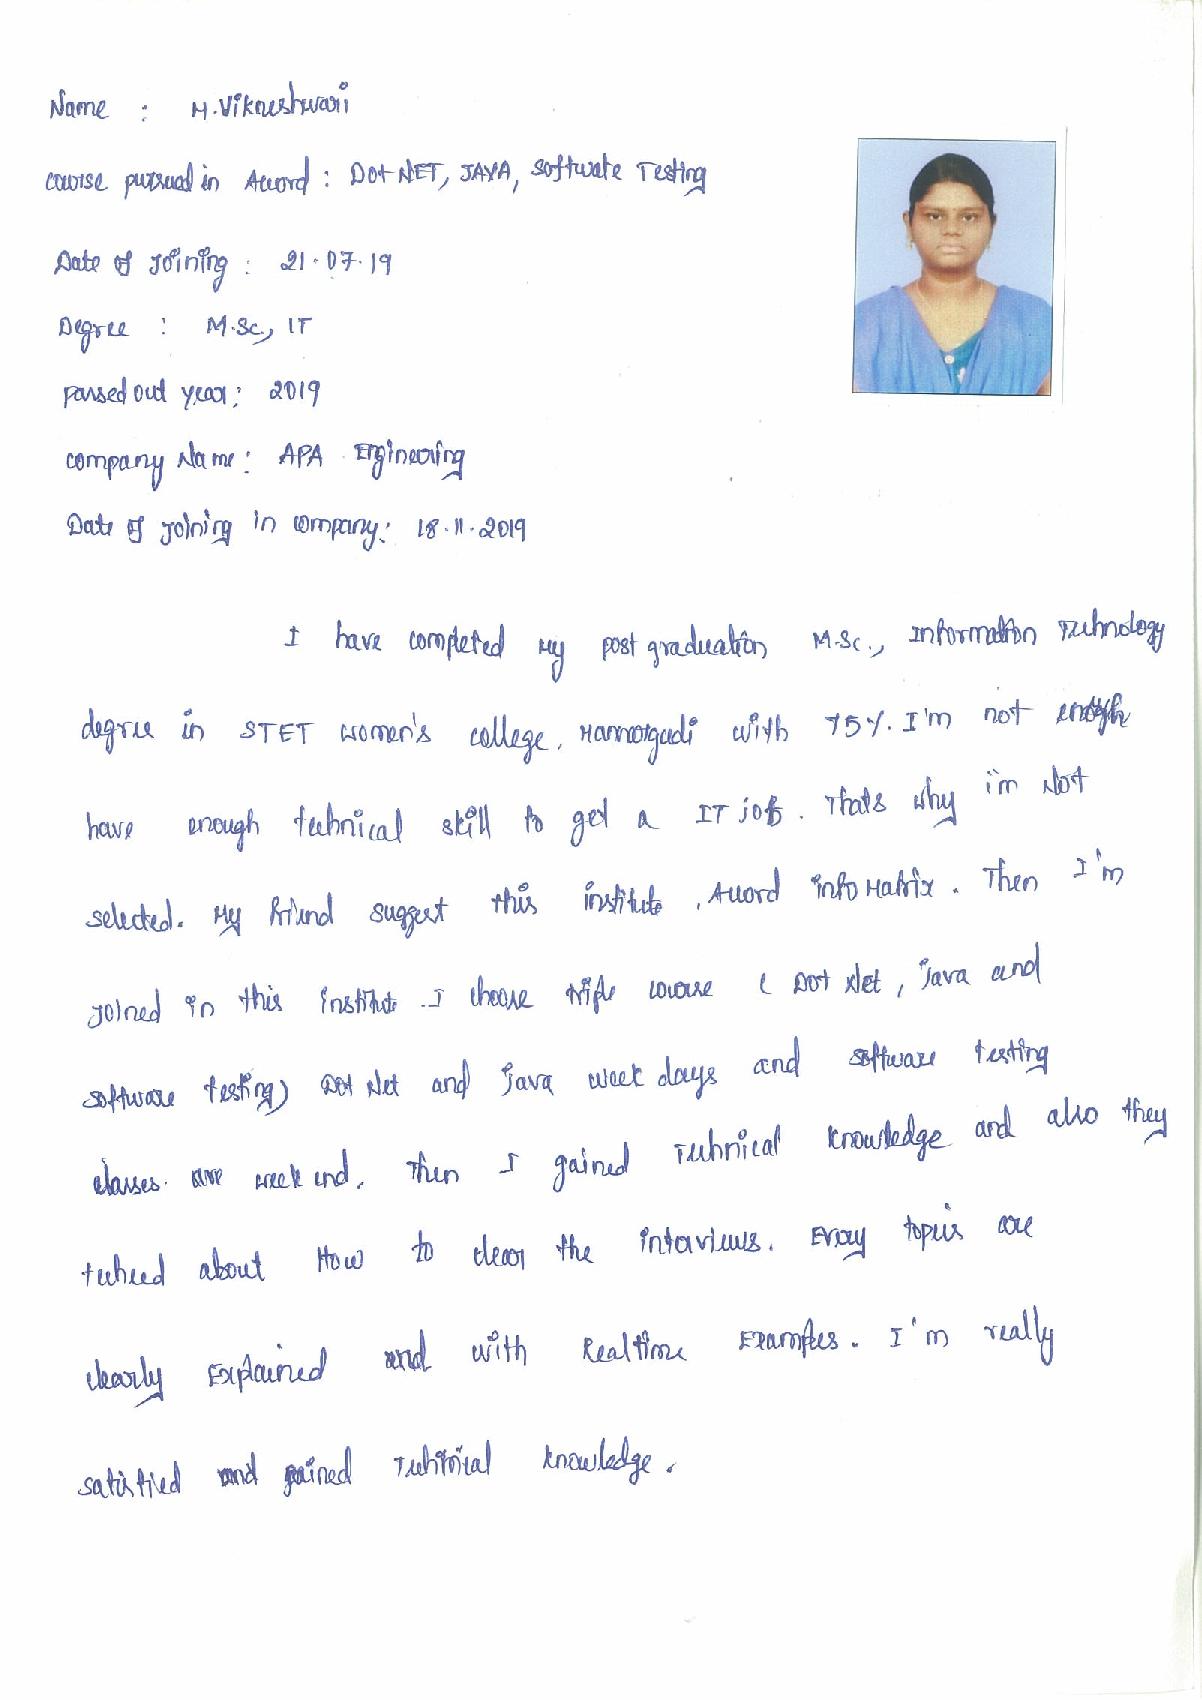 Name : M.Vikneshwari
course pursued in Accord : Dot NET, JAVA, Software Testing
Date of Joining : 21.07.19
Degree : M.Sc., IT
Passed out year : 2019
company Name : APA Engineering
Date of joining in company : 18.11.2019
I have completed My post graduation M.Sc., Information Technology
degree in STET women's college, Mannargudi with 75%. I'm not enough
have enough technical skill to get a IT job. Thats why i'm Not
selected. My friend suggest this institute, Accord info Matrix. Then I'm
joined in this institute. I choose triple course ( Dot Net, Java and
software testing) Dot Net and Java week days and software testing
classes are week end. Then I gained Technical knowledge and also they
teched about How to clear the interviews. Every topics are
clearly Explained and with Realtime Examples. I'm really
satisfied and gained Technical knowledge.